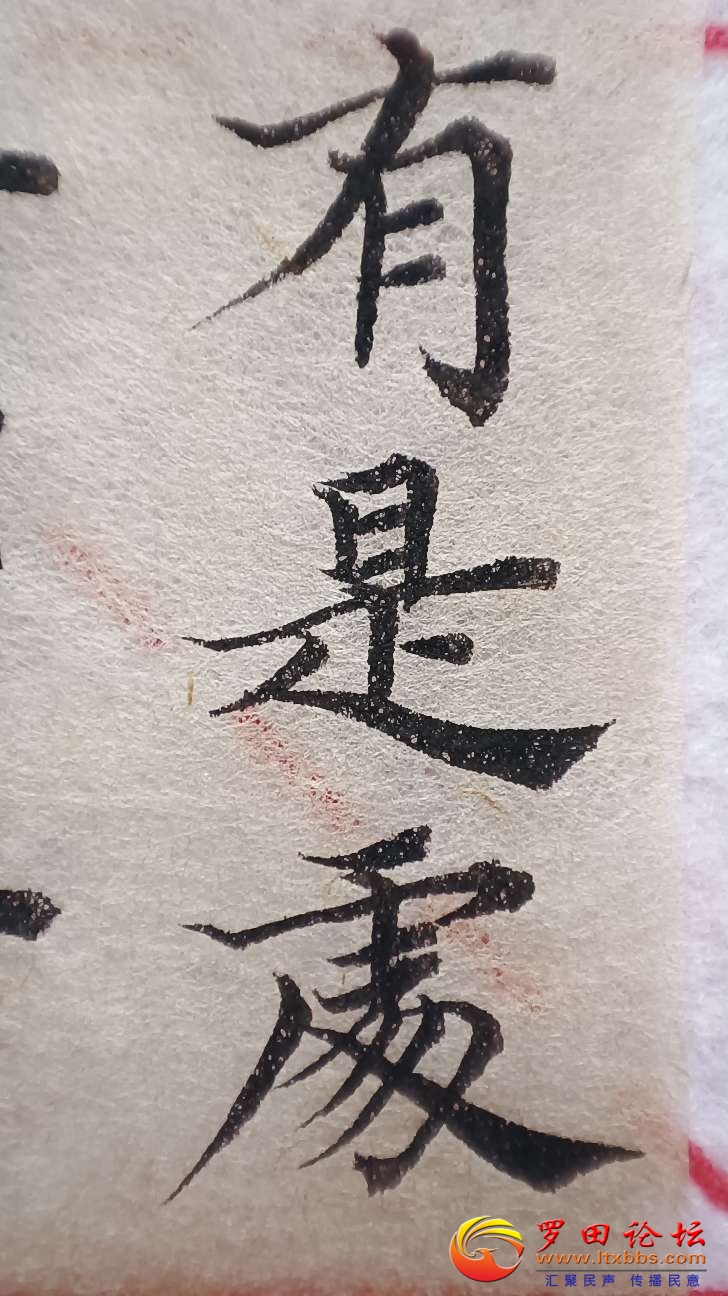 有是處
罗田论坛
www.ltxbbs.com
汇聚民声 传播民意